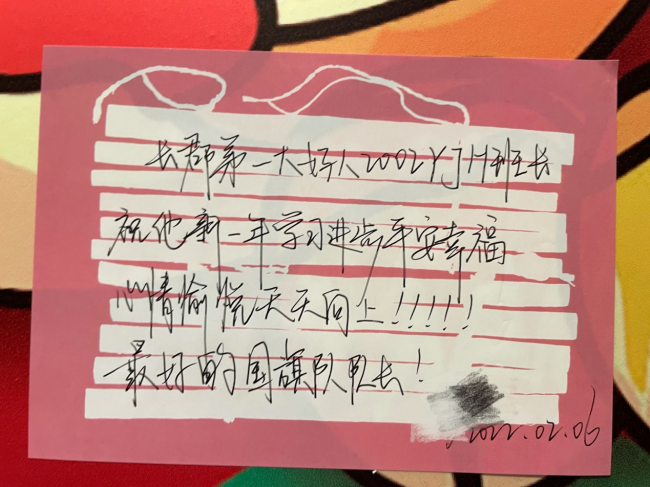 长郡第一大好人2002YJH班长
祝他新一年学习进步平安幸福
心情愉悦天天向上!!!!!
最好的国旗队队长!
2022.02.06